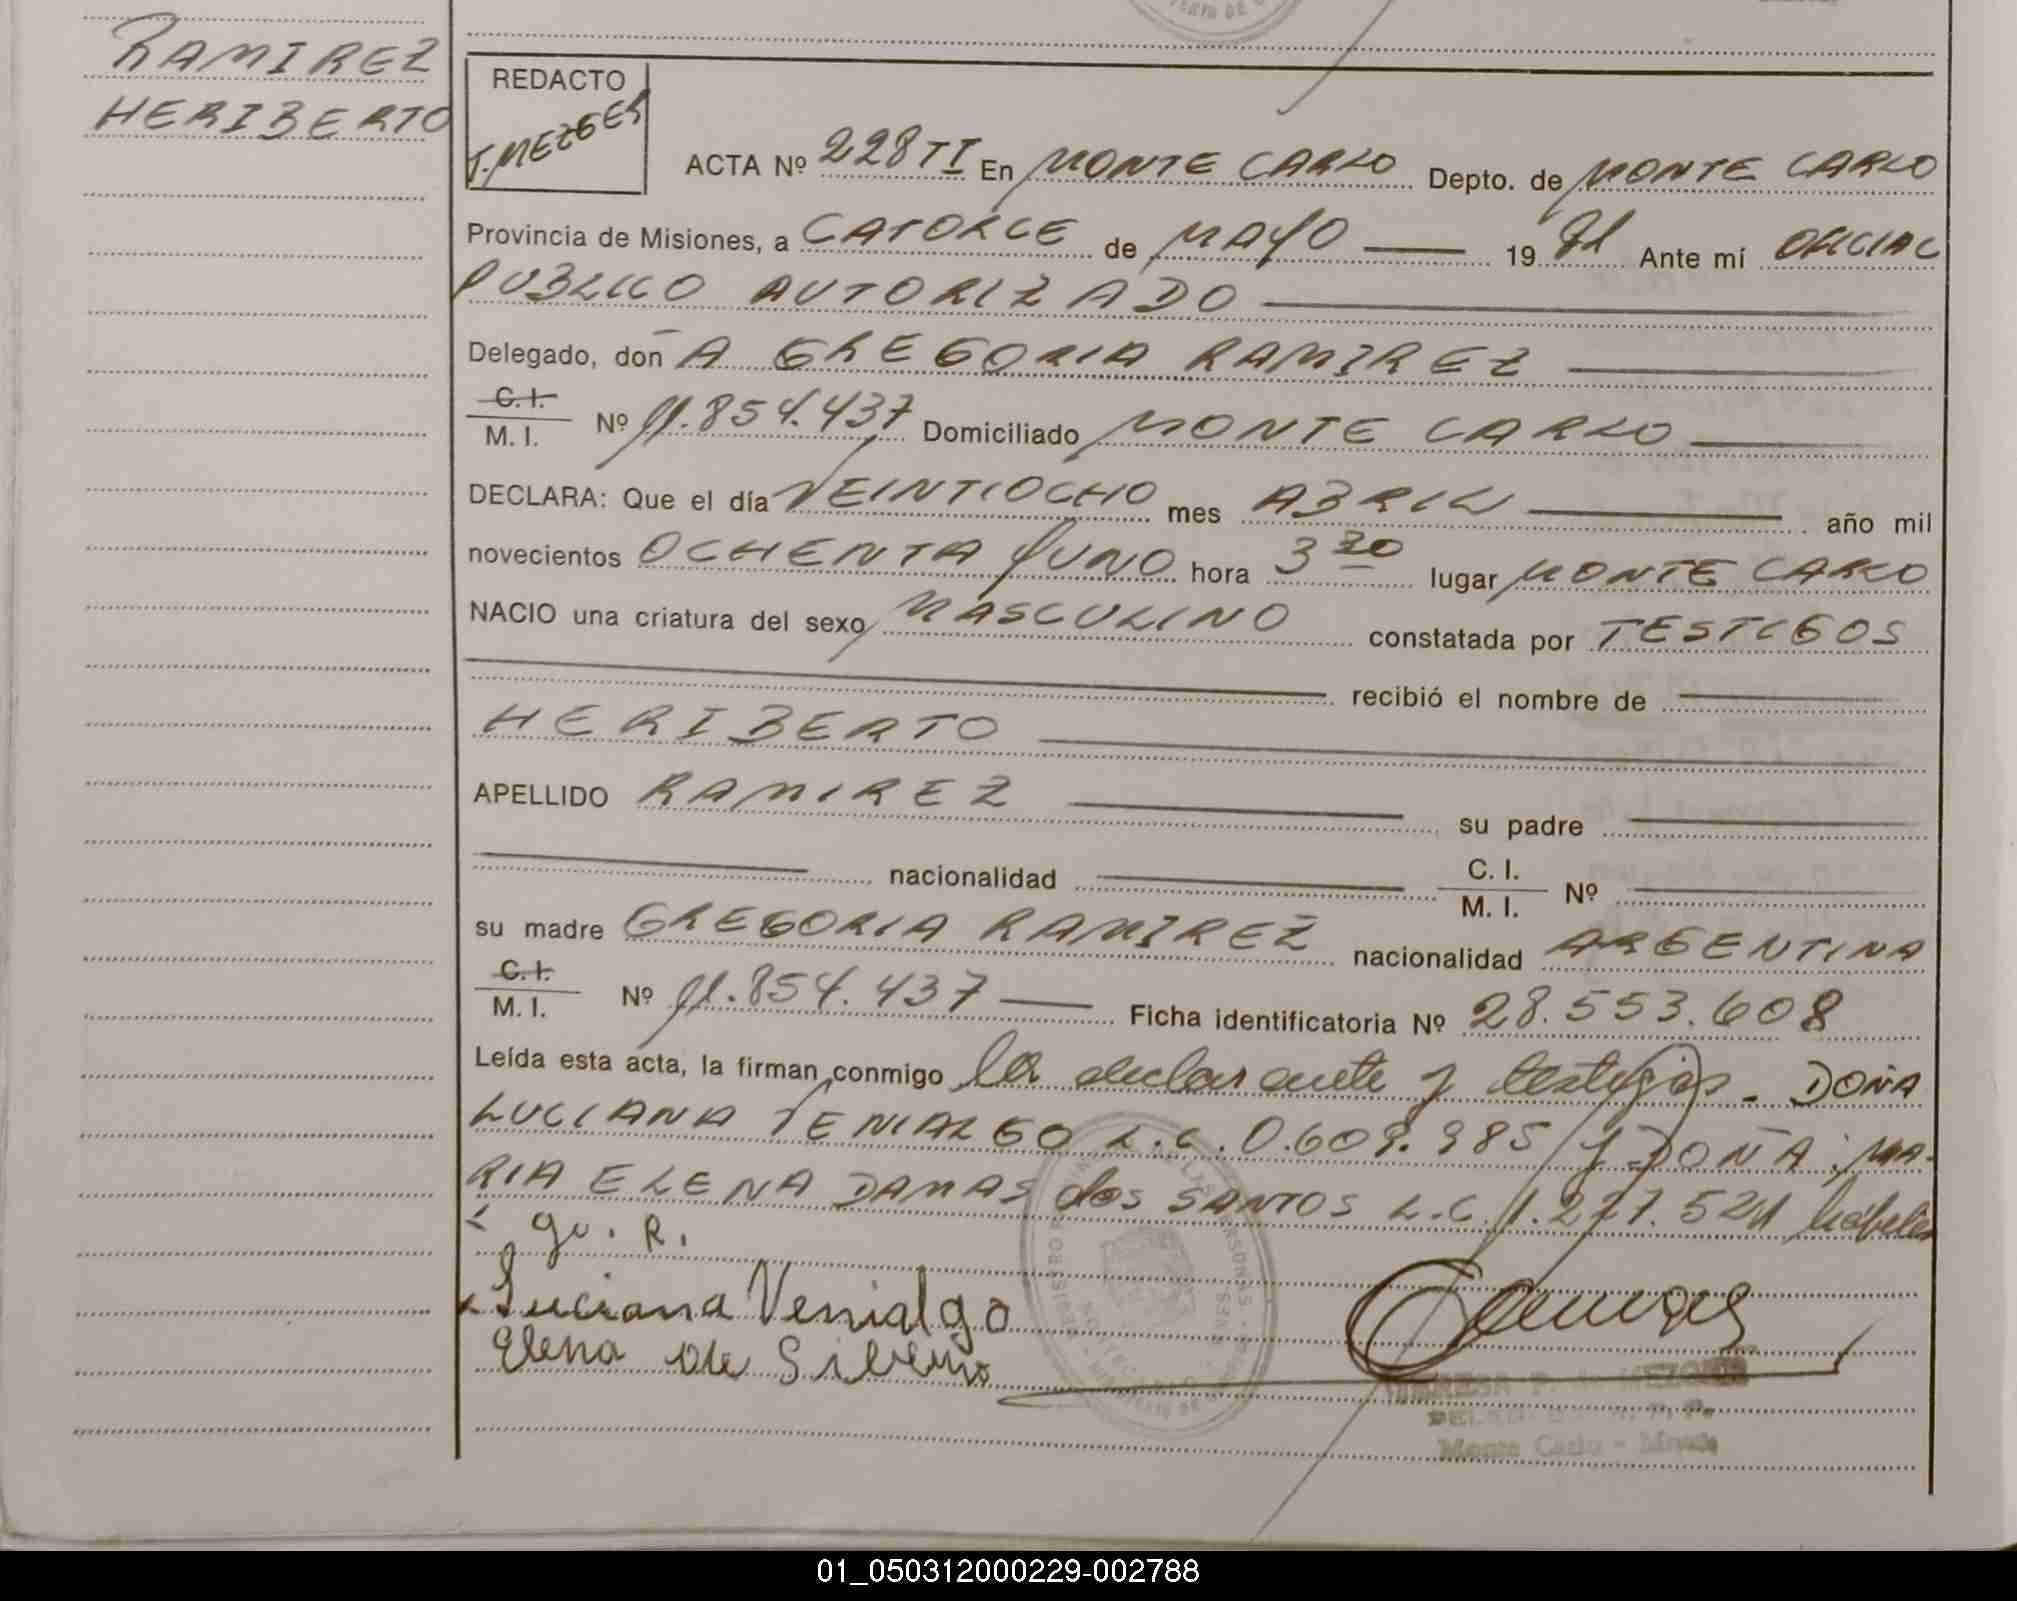 RAMIREZ
HERIBERTO
REDACTO
T. MEZGER
ACTA Nº 228 TI En MONTE CARLO Depto. de MONTE CARLO
Provincia de Misiones, a CATORCE de MAYO 19 81 Ante mí OFICIAL
PUBLICO AUTORIZADO
Delegado, don A GREGORIA RAMIREZ
C. I.
M. I. Nº 11.854.437 Domiciliado MONTE CARLO
DECLARA: Que el día VEINTIOCHO mes ABRIL año mil
novecientos OCHENTA YUNO hora 3 30 lugar MONTE CARLO
NACIO una criatura del sexo MASCULINO constatada por TESTIGOS
recibió el nombre de
HERIBERTO
APELLIDO RAMIREZ su padre
nacionalidad C. I. M. I. Nº
su madre GREGORIA RAMIREZ nacionalidad ARGENTINA
C. I.
M. I. Nº 11.854.437 Ficha identificatoria Nº 28.553.608
Leída esta acta, la firman conmigo la declarante y testigos. DOÑA
LUCIANA VENIALGO L.C. 0.609.985 y DOÑA MA-
RIA ELENA DAMAS dos SANTOS L.C. 1.277.521 hábiles
gu. R.
Luciana Venialgo
Elena de Silveiro
TERESA F. de MEZGER
Monte Carlo - Mnes
01_050312000229-002788